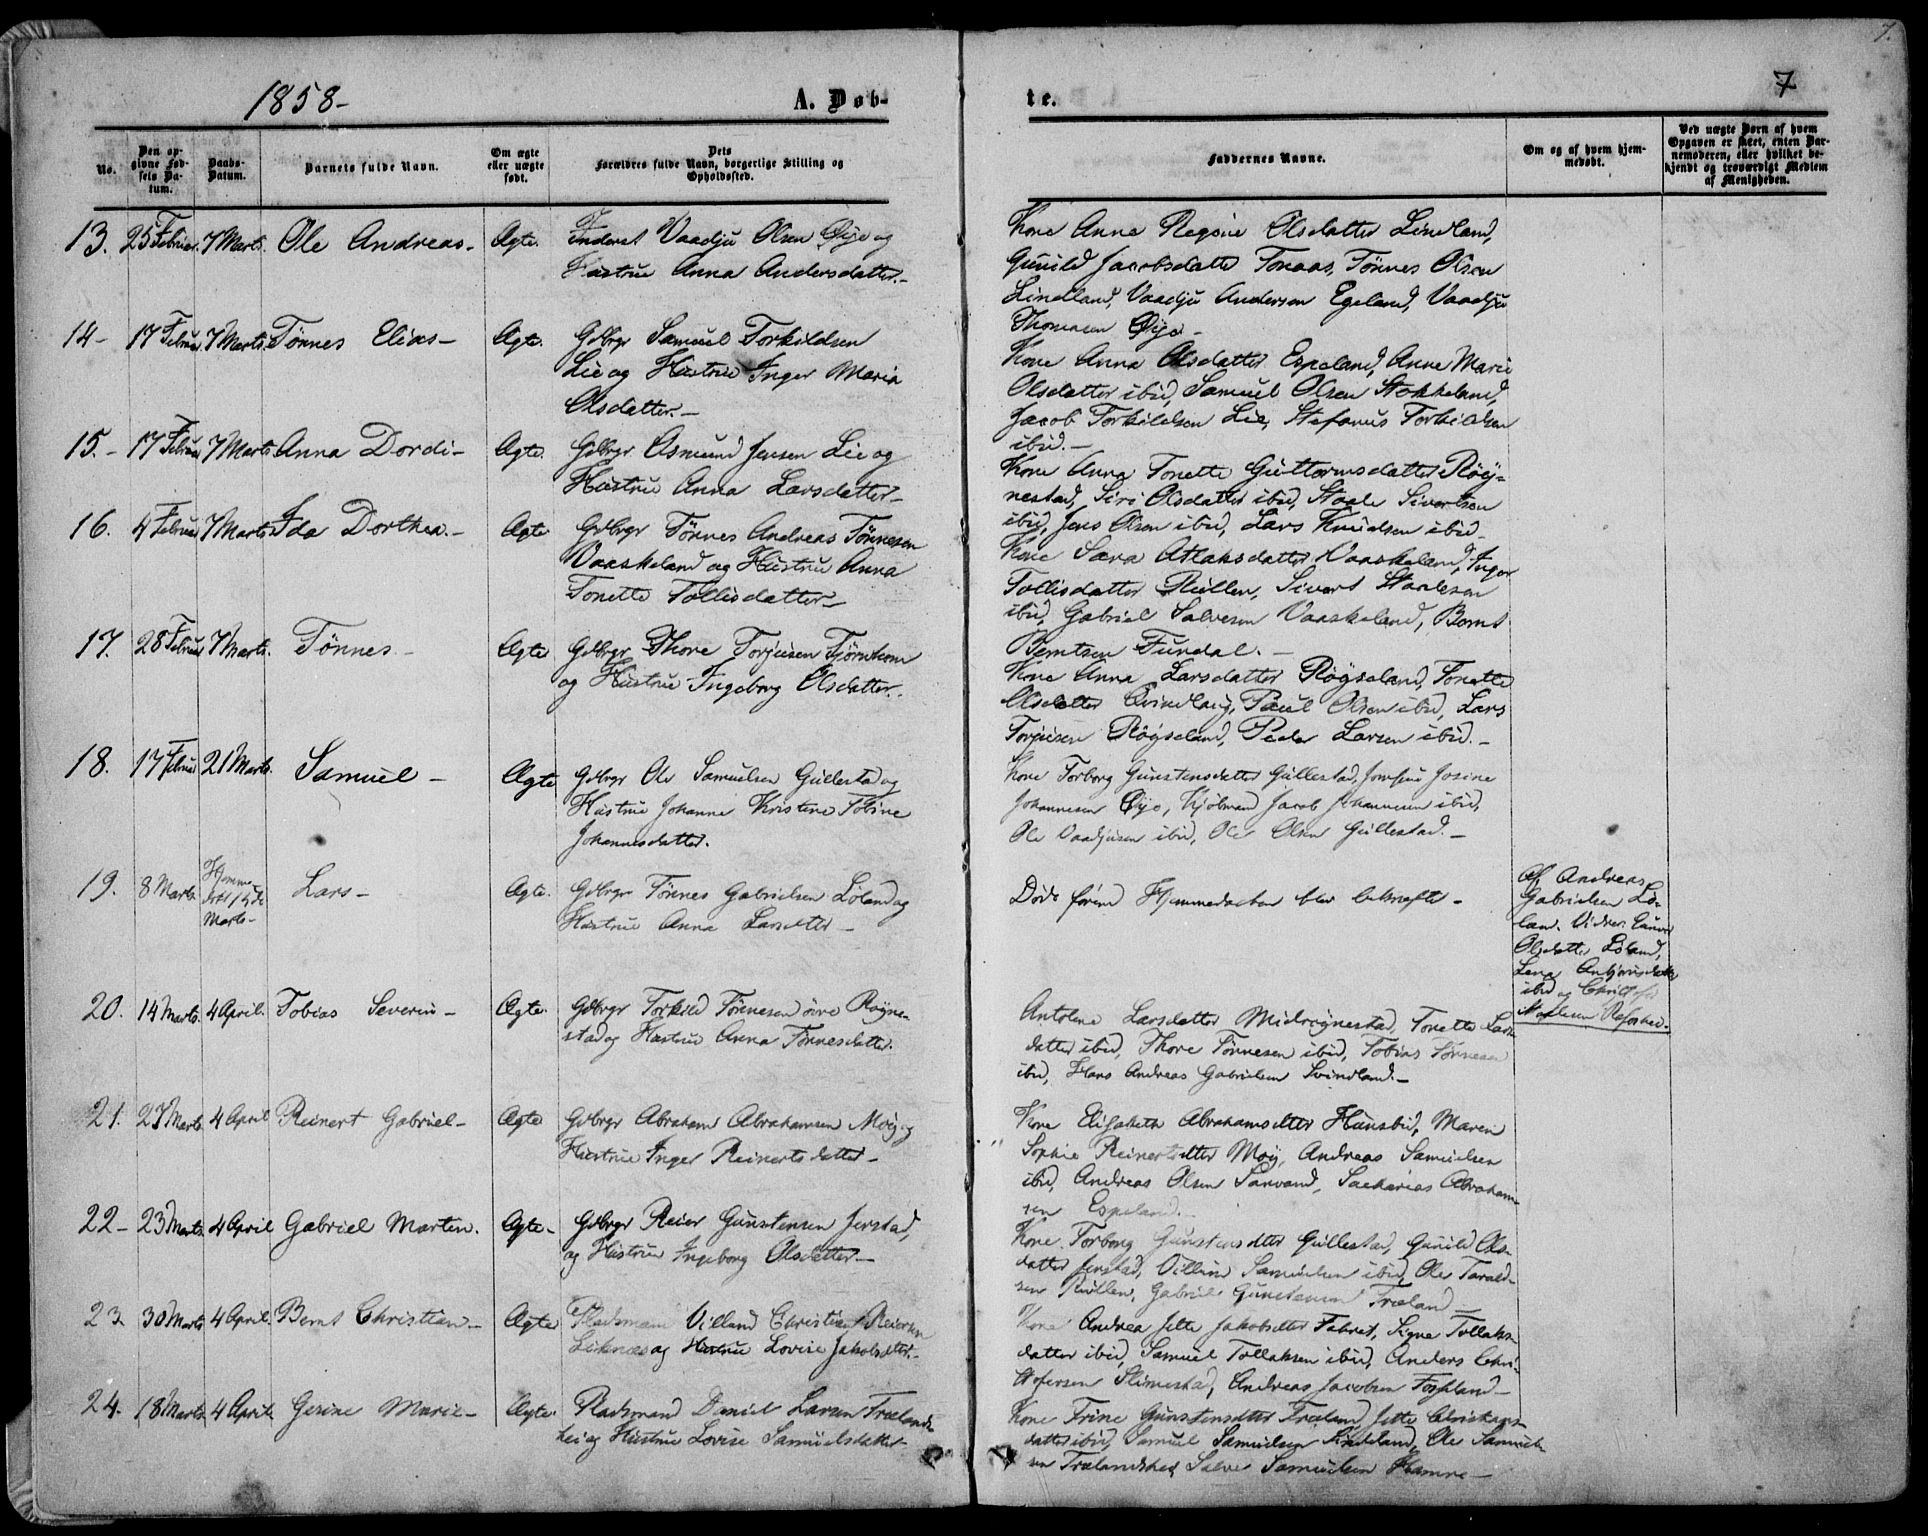 1858-
A. Døb-
te.
7
7.
No.
Den op-
givne Fød-
sels Da-
tum.
Daabs-
Datum.
Barnets fulde Navn.
Om ægte
eller uægte
født.
Dets
Forældres fulde Navn, borgerlige Stilling og
Opholdssted.
Faddernes Navne.
Om og af hvem hjem-
medøbt.
Ved uægte Børn af hvem
Opgaven er skeet, enten Bar-
nemoderen, eller hvilket be-
kjendt og troværdigt Medlem
af Menigheden.
13. 25 Februar. 7 Marts. Ole Andreas- Ægte. Inderst Vaadju Olsen Øye og
Hustrue Anna Andersdatter.-
Kone Anna Regine Olsdatter Lindland,
Gunild Jacobsdatter Tonaas, Tönnes Olsen
Lindland, Vaadju Anderson Egeland, Vaadju
Thomasen Øye-
14- 17 Februar 7 Marts. Tönnes Elias- Ægte. Gdbrgr Samuel Torkildsen
Lie og Hustrue Inger Maria
Olsdatter.-
Kone Anna Olsdatter Espeland, Anne Marie
Olsdatter ibid, Samuel Olsen Stokkeland,
Jacob Torkildsen Lie, Stefanus Torkildsen
ibid.-
15.- 17 Februar 7 Marts Anna Dordi- Ægte. Gdbrgr Asmund Jensen Lie og
Hustrue Anna Larsdatter-
Kone Anna Tonette Guttormsdatter Røy-
nestad, Siri Olsdatter ibid, Staale Sivertsen
ibid, Jens Olsen ibid, Lars Knudsen ibid-
16. 4 Februar 7 Marts Ida Dorthea.- Ægte Gdbrgr Tönnes Andreas Tönnesen
Vaaskeland og Hustrue Anna
Tonette Tollisdatter-
Kone Sara Atlaksdatter Vaaskeland, Inger
Tollisdatter Rullen, Sivert Staalesen
ibid, Gabriel Salvesen Vaaskeland, Bernt
Berntsen Fundal.-
17. 28 Februar 7 Marts. Tönnes- Ægte Gdbrgr Thore Torjusen Tjørnhom
og Hustrue Ingeborg Olsdatter.
Kone Anna Larsdatter Røyseland, Tonette
Olsdatter Qvindlaug, Paul Olsen ibid, Lars
Torjusen Røyseland, Peder Larsen ibid.-
18. 17 Februar 21 Marts. Samuel- Ægte Gdbrgr Ole Samuelsen Gullestad og
Hustrue Johanne Kristine Tobine
Johannesdatter.
Kone Torborg Gunstensdatter Gullestad, Jomfru Josine
Johannesen Øye, Kjøbmand Jacob Johannesen ibid,
Ole Vaadjusen ibid, Ole Olsen Gullestad.-
19. 8 Marts. Hjemme
døbt
Marts- Lars- Ægte. Gdbrgr Tönnes Gabrielsen Löland og
Hustrue Anna Larsdatter-
Døde førend Hjemmedaaben blev bekræftet-
Af Andreas
Gabrielsen Lö-
land. Vidner:
Olsdatter Löland,
Lena
ibid og
20. 14 Marts. 4 April. Tobias Severin- Ægte. Gdbrgr Torkild Tönnesen övre Røyne-
stad og Hustrue Anna Tönnesdatter.
Antolene Larsdatter Midtrøynestad, Tonette Lars-
datter ibid, Thore Tönnesen ibid, Tobias Tönnesen
ibid, Hans Andreas Gabrielsen Svindland.-
21. 27 Marts. 4 April Reinert Gabriel- Ægte Gdbrgr Abraham Abrahamsen Moy og
Hustrue Inger Reinertsdatter-
Kone Elisabeth Abrahamsdtter Hunsbid, Maren
Sophie Reinertsdtter Moy, Andreas Samuelsen
ibid, Andreas Olsen Sarvand, Sacharias Abraham-
sen Espeland.-
22- 23 Marts. 4 April Gabriel Martin. Ægte- Gdbrgr Reier Gunstensen Jerstad,
og Hustrue Ingeborg Olsdatter-
Kone Torborg Gunstensdtter Gullestad, Gunild Ols-
datter Jerstad, Villum Samuelsen ibid, Ole Tarald-
sen Rullen, Gabriel Gunstensen Træland-
23 30 Marts 4 April. Bernt Christian- Ægte Pladsmand Villand Christian Reiersen
Liknæs og Hustrue Lovise Jakobsdtter.-
Kone Andrea Jette Jakobsdtter Fabret, Signe Tollaks-
datter ibid, Samuel Tollaksen ibid, Anders Chri-
stofersen Slimestad, Andreas Jacobsen Fosseland-
24. 18 Marts. 4 April Gesine Marie- Ægte. Pladsmand Daniel Larsen Trælands-
hei og Hustrue Lovise Samuelsdatter-
Kone Trine Gunstensdtter Træland, Jette Christians-
datter ibid, Samuel Samuelsen Lindeland, Ole Samuel-
sen Trælandshei, Salve Samuelsen Hamre-